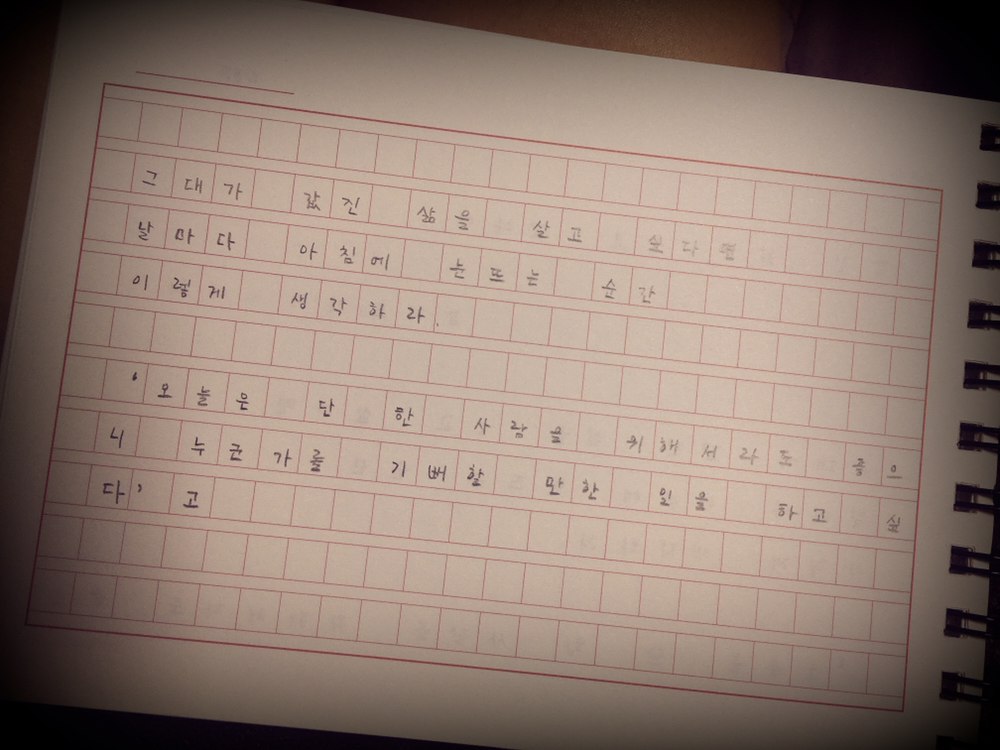 그대가 값진 삶을 살고 싶다면
날마다 아침에 눈뜨는 순간
이렇게 생각하라.
'오늘은 단 한 사람을 위해서라도 좋으
니 누군가를 기뻐할 만한 일을 하고 싶
다' 고